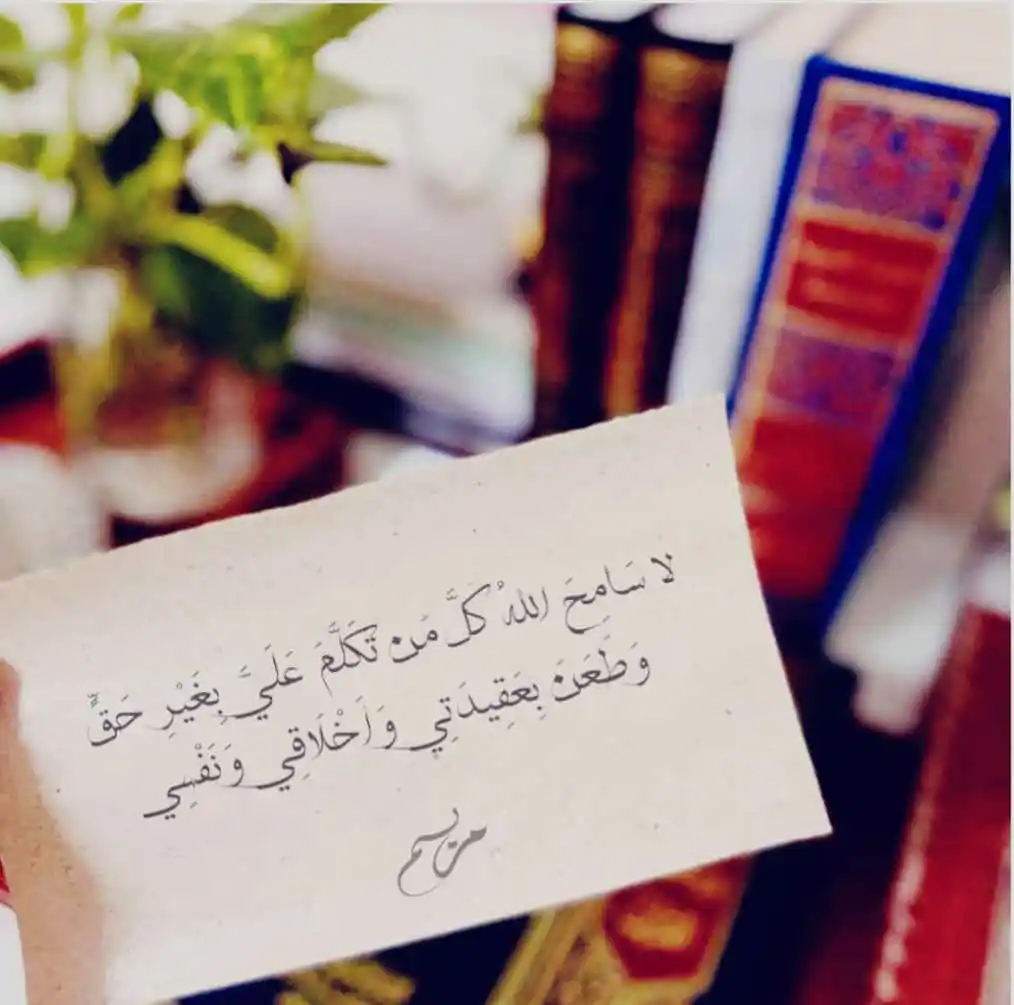 لا سَامِحَ اللهُ كُلَّ مَن تَكَلَّمَ عَلَيَّ بِغَيْرِ حَقٍّ
وَطَعَنَ بِعَقِيدَتِي وَاَخْلَاقِي وَنَفْسِي
مريم